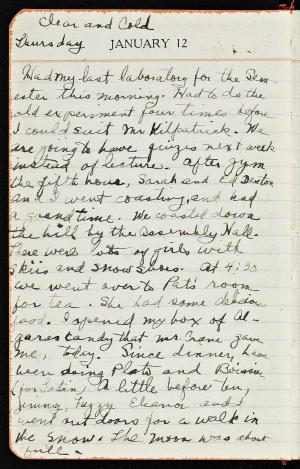 Clear and Cold
Thursday JANUARY 12
Had my last laboratory for the Sem-
ester this morning. Had to do the
old experiment four times before
I could suit Mr Kilpatrick. We
are going to have quizes next week
instead of lecture. After gym
the fifth hour, Sarah and Ed
and I went coasting, and had
a grand time. We coasted down
the hill by the Assembly Hall.
There were lots of girls with
skiis and snow shoes. At 4:30
we went over to Pat's room
for tea. She had some
food. I opened my box of Al-
garas candy that Mr Crane gave
me, today. Since dinner, have
been doing Plats and
(for Latin). A little before ten,
Jimmy, Fuzzy Eleanor and I
went out doors for a walk in
the snow. The moon was about
full.